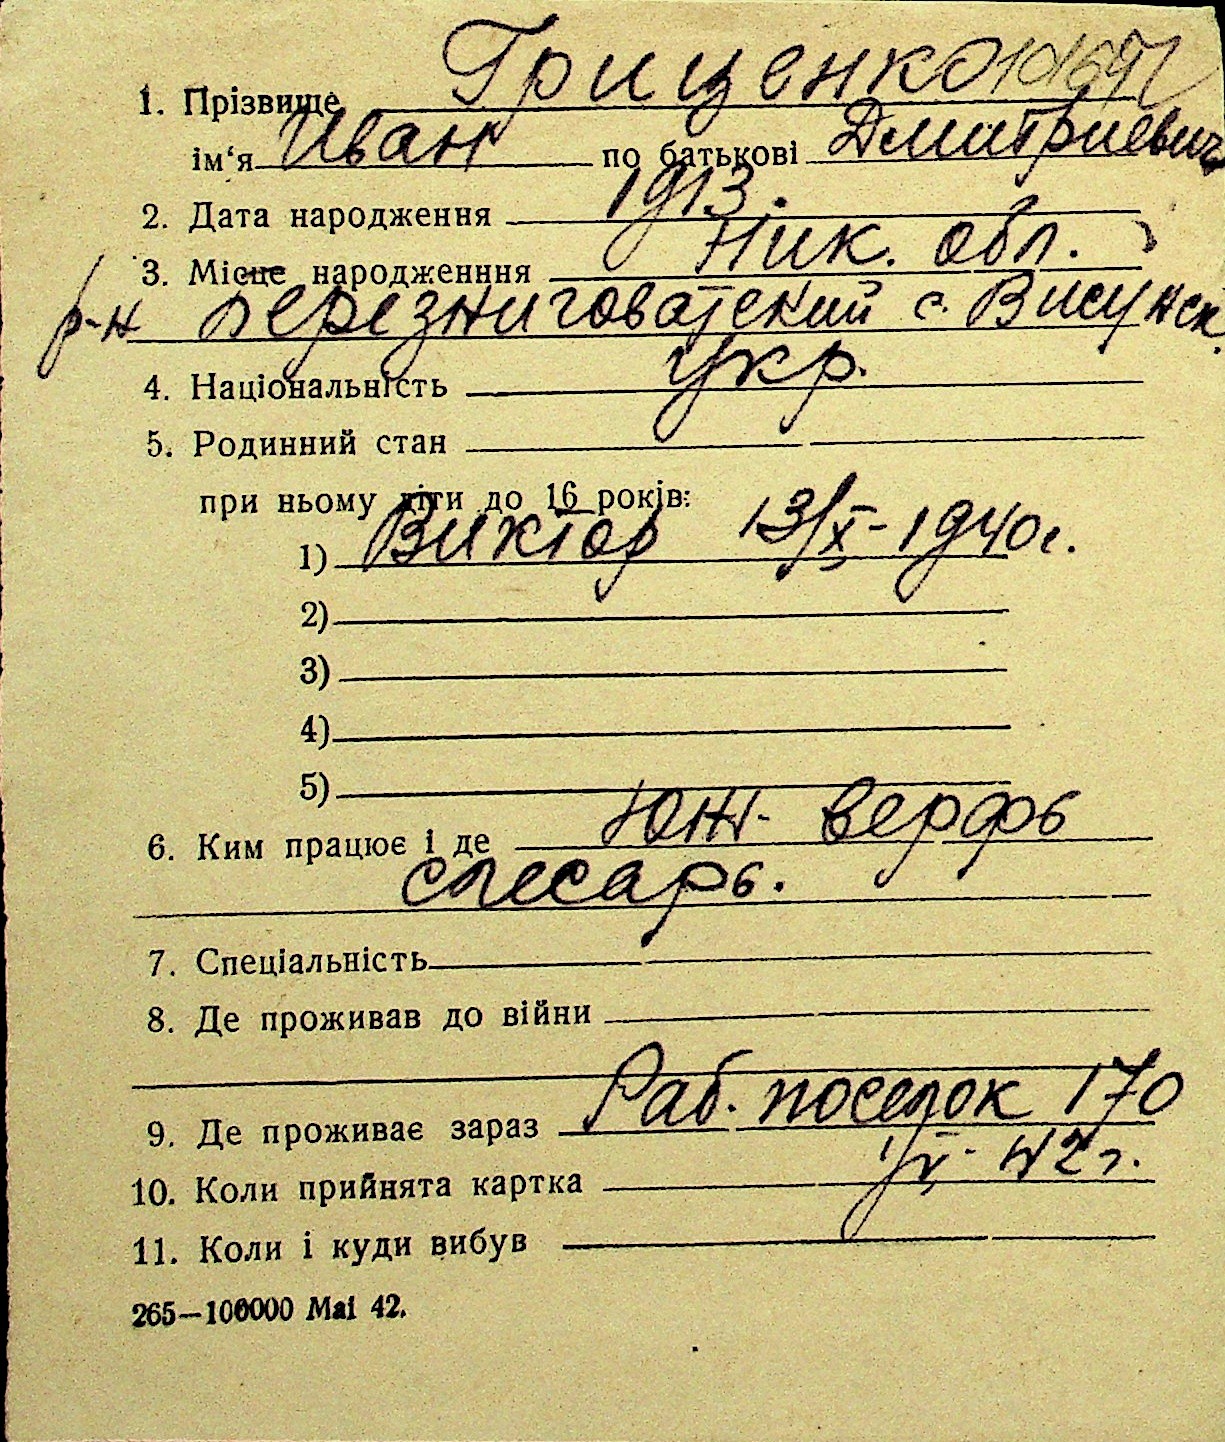 1. Прізвище Гриценко
ім‘я Иван по батькові Дмитриевич
2. Дата народження 1913.
3. Місце народженння Ник. обл.
р-н Березниговатский с. Висунск.
4. Національність Укр.
5. Родинний стан
при ньому діти до 16 років:
1) Виктор 13/X-1940г.
2)
3)
4)
5)
6. Ким працює і де Юж. верфь
слесарь.
7. Спеціальність
8. Де проживав до війни
9. Де проживає зараз Раб. поселок 170
10. Коли прийнята картка 42г.
11. Коли і куди вибув
265—100000 Mai 42.